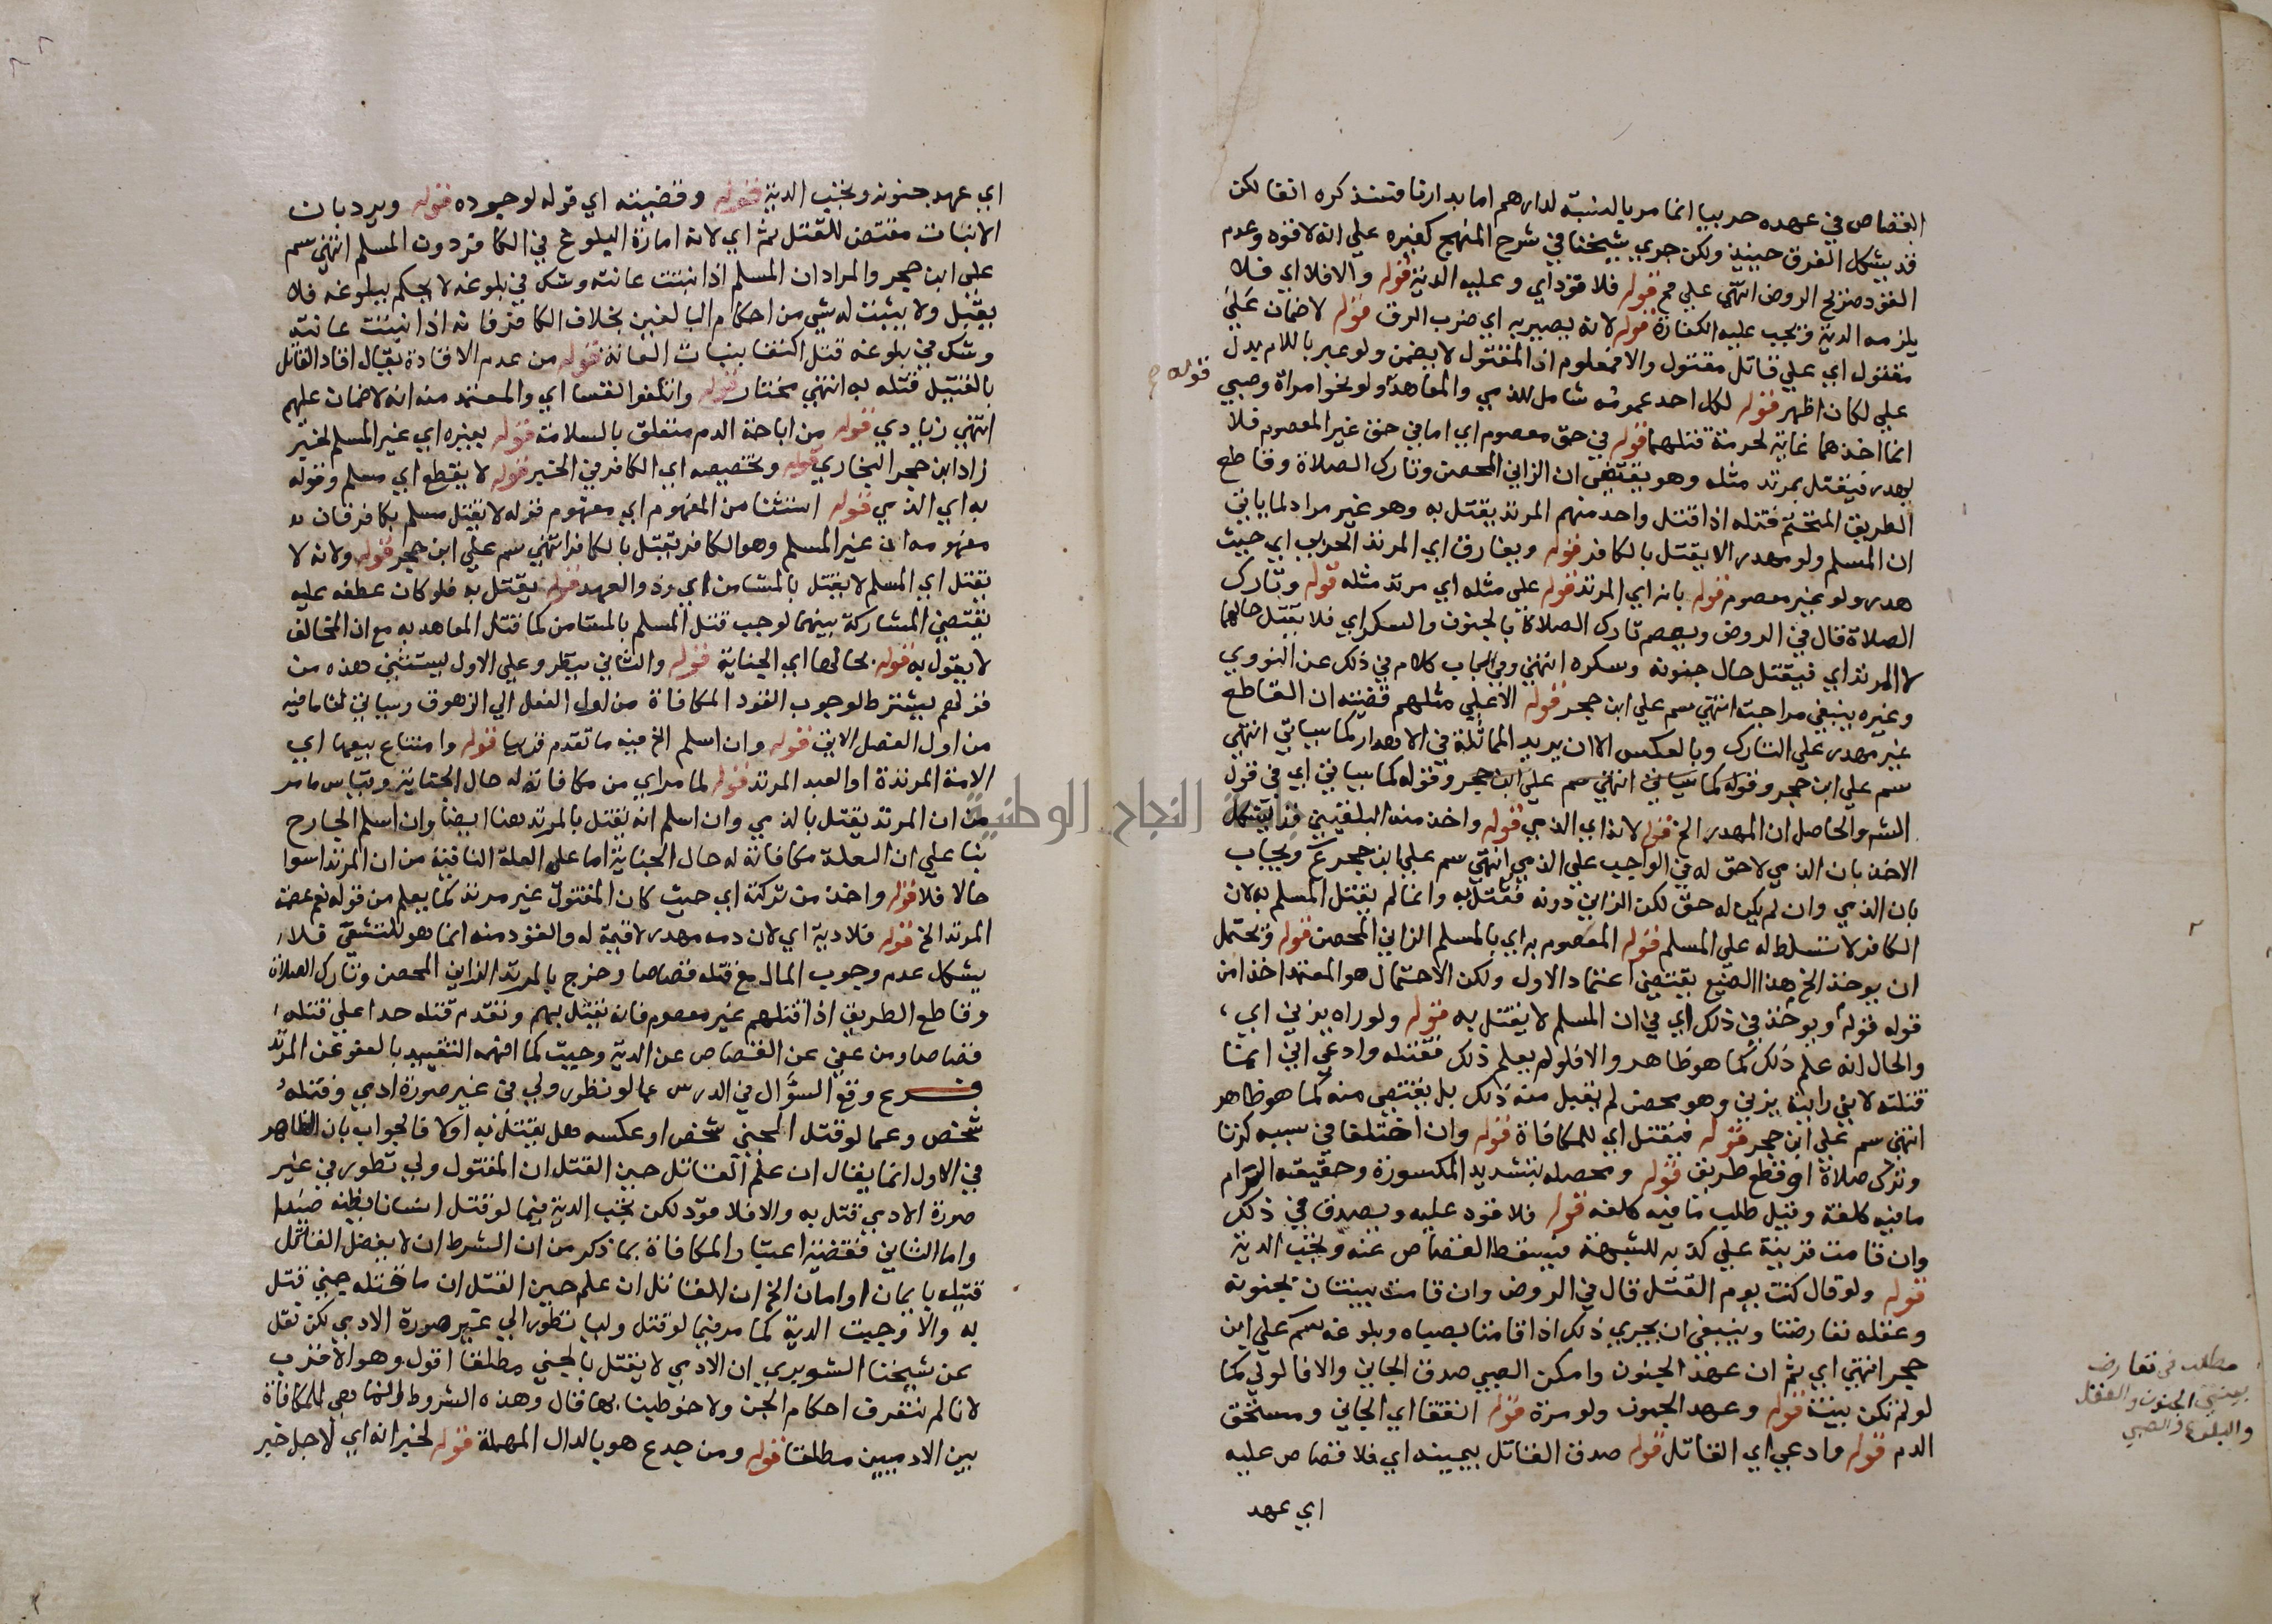 القصاص في عهده حربيا انما مر بالنسبة لدارهم اما بدارنا فتنذكره اتفا لكن
قد يشكل الفرق حينيذ ولكن جري شيخنا في شرح المنهج كغيره علي انه لا قوه وعدم
القود صريح الروض انتهي علي حج قوله فلا قود اي وعليه الدية قوله والا فلا اي فلا
يلزمه الدية وتجب عليه الكفارة قوله لانه يصير به اي ضرب الرق قوله لا ضمان علي
مقتول اي علي قاتل مقتول والا فمعلوم ان المقتول لا يضمن ولو عبر باللام بدل
علي لكان اظهر قوله لكل احد عمومه شامل للذمي والمعاهد ولو نحو امراة وصبي
قوله
انما اخذهما غاية لحرمة قتلهما قوله في حق معصوم اي اما في حق غير المعصوم فلا
يهدر فيقتل بمرتد مثله وهو يقتضي ان الزاني المحصن وتارك الصلاة وقاطع
الطريق المتحتم قتله اذا قتل واحد منهم المرتد يقتل به وهو غير مراد لما ياتي
ان المسلم ولو مهدر الا يقتل بالكافر قوله ويفارق اي المرتد الحربي اي حيث
هدر ولو غير معصوم قوله بانه اي المرتد قوله على مثله اي مرتد مثله قوله وتارك
الصلاة قال في الروض ويعصم تارك الصلاة بالجنون والسكر اي فلا يقتل حالهما
لا المرتد اي فيقتل حال جنونه وسكره انتهي وفي الباب كلام في ذلك عن النووي
وغيره ينبغي مراجعته انتهي سم علي ابن حجر قوله الا علي مثلهم قضيته ان القاطع
غير مهدر علي التارك وبالعكس الا ان يريد المماثلة في الاهدار كما سياتي انتهي
سم علي ابن حجر وقوله كما سياتي انتهي سم علي ابن حجر وقوله كما سياتي اي في قول
الشم والحاصل ان المهدر الخ قوله لانه اي الذمي قوله واخذ منه البلقيني قد يشكل
الاخذ بان الذمي لا حق له في الواجب علي الذمي انتهي سم علي ابن حجر ويجاب
بان الذمي وان لم يكن له حق لكن الزاني دونه فقتل به وانما لم يقتل المسلم به لان
الكافر لا تسلط له علي المسلم قوله المعصوم به اي بالمسلم الزاني المحصن قوله ويحتمل
ان يوخذ الخ هذا الصنيع يقتضي اعتماد الاول ولكن الاحتمال هو المعتمد اخذا من
قوله قوله ويوخذ في ذلك اي في ان المسلم لا يقتل به قوله ولو راه يزني اي
والحال انه علم ذلك كما هو ظاهر والا فلو لم يعلم ذلك فقتله وادعي اني انما
قتلته لاني رايته يزني وهو محصن لم يقبل منه ذلك بل يقتص منه كما هو ظاهر
انتهي سم علي ابن حجر قوله فيقتل اي للمكافاة قوله وان اختلفا في سببه كزنا
وترك صلاة او قطع طريق قوله ومحصله بتشديد المكسورة وحقيقته الزام
ما فيه كلفة وقيل طلب ما فيه كلفه قوله فلا قود عليه ويصدق في ذلك
وان قامت قرينة علي كذبه للشبهة فيسقط القصاص عنه وتجب الدية
قوله ولو قال كنت يوم القتل قال في الروض وان قامت بينتان بجنونه
وعقله تعارضتا وينبغي ان يجري ذلك اذا قامتا بصباه وبلوغه سم علي ابن
حجر انتهي اي ثم ان عهد الجنون وامكن الصبي صدق الجاني والا فالولي كما
لو لم تكن بينة قوله وعهد الجنون ولو مرة قوله اتفقا اي الجاني ومستحق
الدم قوله وادعي اي القاتل قوله صدق القاتل بيمينه اي فلا قصاص عليه
اي عهد
مطلب في تعارض
بينتي الجنون والعقل
والبلوغ والصبي
اي عهد جنونه وتجب الدية قوله وقضيته اي قوله لوجوده قوله ويرد بان
الانبات مقتض للقتل ثم اي لانه امارة البلوغ في الكافر دون المسلم انتهي سم
علي ابن حجر والمراد ان المسلم اذا نبتت عانته وشك في بلوغه لا يحكم ببلوغه فلا
يقتل ولا يثبت له شي من احكام البالغين بخلاف الكافر فانه اذا نبتت عانته
وشك في بلوغه قتل اكتفا بنبات العانة قوله من عدم الاقادة يقال افاد القاتل
بالقتيل قتله به انتهي مختار قوله واتلفوا نفسا اي والمعتمد منه انه لا ضمان عليهم
انتهي زيادي قوله من اباحة الدم متعلق بالسلامة قوله بغيره اي غير المسلم لخبر
زاد ابن حجر البخاري قوله وتخصيصه اي الكافر في الخبر قوله لا يقطع اي مسلم وقوله
به اي الذمي قوله استثنا من المفهوم اي مفهوم قوله لا يقتل مسلم بكافر فان
مفهومه ان غير المسلم وهو الكافر يقتل بالكافر انتهي سم علي ابن حجر قوله ولانه لا
يقتل اي المسلم لا يقتل بالمستامن اي وذو العهد قوله يقتل به فلو كان عطفه عليه
يقتضي المشاركة بينهما لوجب قتل المسلم بالمستامن كما قتل المعاهد به مع ان المخالف
لا يقول به قوله بحالها اي الجناية قوله والثاني ينظر وعلي الاول يستثني هذه من
قولهم يشترط لوجوب القود المكافاة من اول الفعل الي الزهوق وسياتي لنا ما فيه
من اول الفصل الاتي قوله وان اسلم الخ فيه ما تقدم قريبا قوله وامتناع بيعها اي
الامة المرتدة او العبد المرتد قوله لما مر اي من مكافاته له حال الجناية وقياس ما مر
من ان المرتد يقتل بالذمي وان اسلم انه يقتل بالمرتد هنا ايضا وان اسلم الجارح
بنا علي ان العلة مكافاته له حال الجناية اما علي العلة الثانية من ان المرتد اسوا
حالا فلا قوله واخذ من تركته اي حيث كان المقتول غير مرتد كما يعلم من قوله نعم عصمة
المرتد الخ قوله فلا دية اي لان دمه مهدر لا قيمة له والقود منه انما هو للتشفي فلا
يشكل عدم وجوب المال مع قتله قصاصا وخرج بالمرتد الزاني المحصن وتارك الصلاة
وقاطع الطريق اذا قتلهم غير معصوم فانه يقتل بهم وتقدم قتله حدا علي قتله
قصاصا ومن عفي عن القصاص عن الدية وجبت كما افهمه التقييد بالعفو عن المرتد
فرع وقع السؤال في الدرس عما لو تطور ولي في غير صورة ادمي وقتله
شخص وعما لو قتل الجني شخص او عكسه هل يقتل به او لا فالجواب بان الظاهر
في الاول انما يقال ان علم القاتل حين القتل ان المقتول ولي تطور في غير
صورة الادمي قتل به والا فلا قود لكن تجب الدية فيما لو قتل انسانا يظنه صيدا
واما الثاني فقضية اعتبار المكافاة بما ذكر من ان الشرط ان لا يفضل القاتل
قتيله بايمان او امان الخ ان القاتل ان علم حين القتل ان ما قتله جني قتل
به والا وجبت الدية كما مر فيما لو قتل وليا تطور الي غير صورة الادمي لكن نقل
عن شيخنا الشوبري ان الادمي لا يقتل بالجني مطلقا اقول وهو الاقرب
لانا لم نعرف احكام الجن ولا خوطبنا بها قال وهذه الشروط انما هي للمكافاة
بين الادميين مطلقا قوله ومن جدع هو بالدال المهملة قوله لخبر انه اي لاجل خبر
النجاح الوطنية